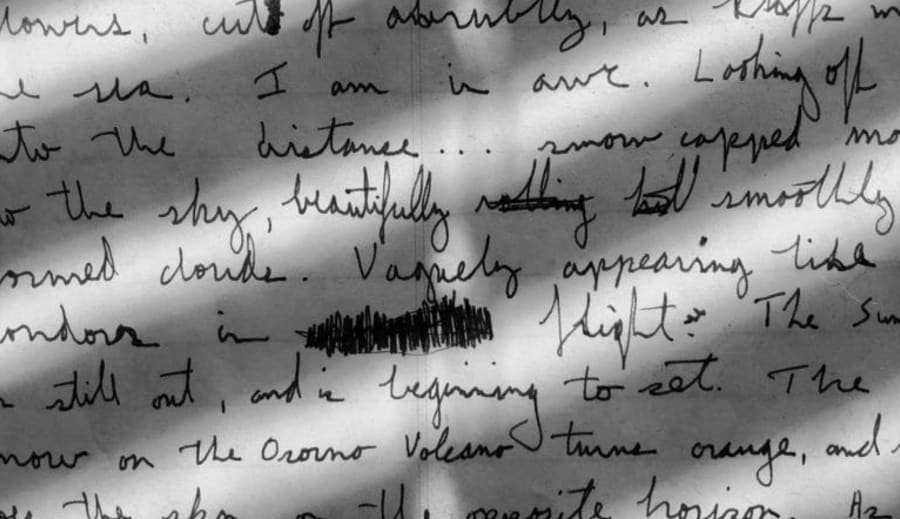 lowers, cut off abruptly, as drops
sea. I am in awe. Looking off
the distance... snow capped
the sky, beautifully rolling smoothly
ormed clouds. Vaguely appearing like
ondors in flight. The Sun
still out, and is beginning to set. The
now on the Osorno Volcano turns orange, and
the sky on the opposite horizon. As